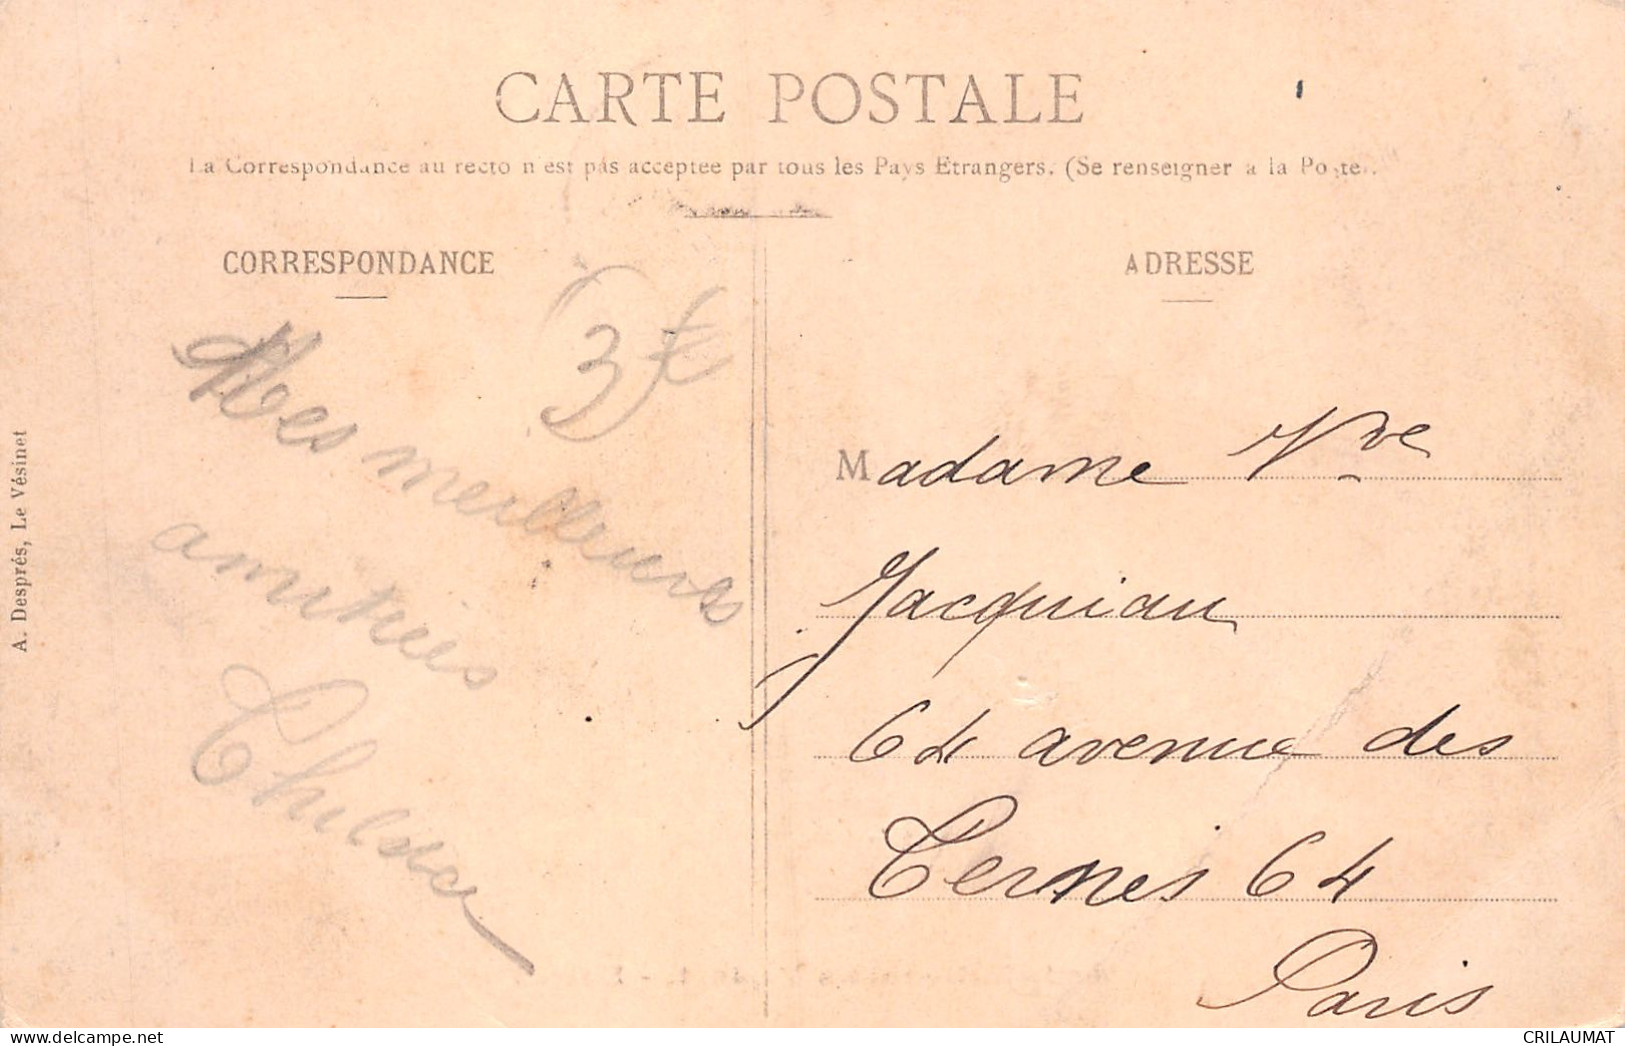 CARTE POSTALE
La Correspondance au recto n'est pas acceptee par tous les Pays Etrangers. (Se renseigner a la Poste).
CORRESPONDANCE
3€
Mes meilleures
amitiés
A. Després, Le Vésinet
ADRESSE
Madame Vve
Jacquiau
64 avenue des
Ternes 64
Paris
CRILAUMAT